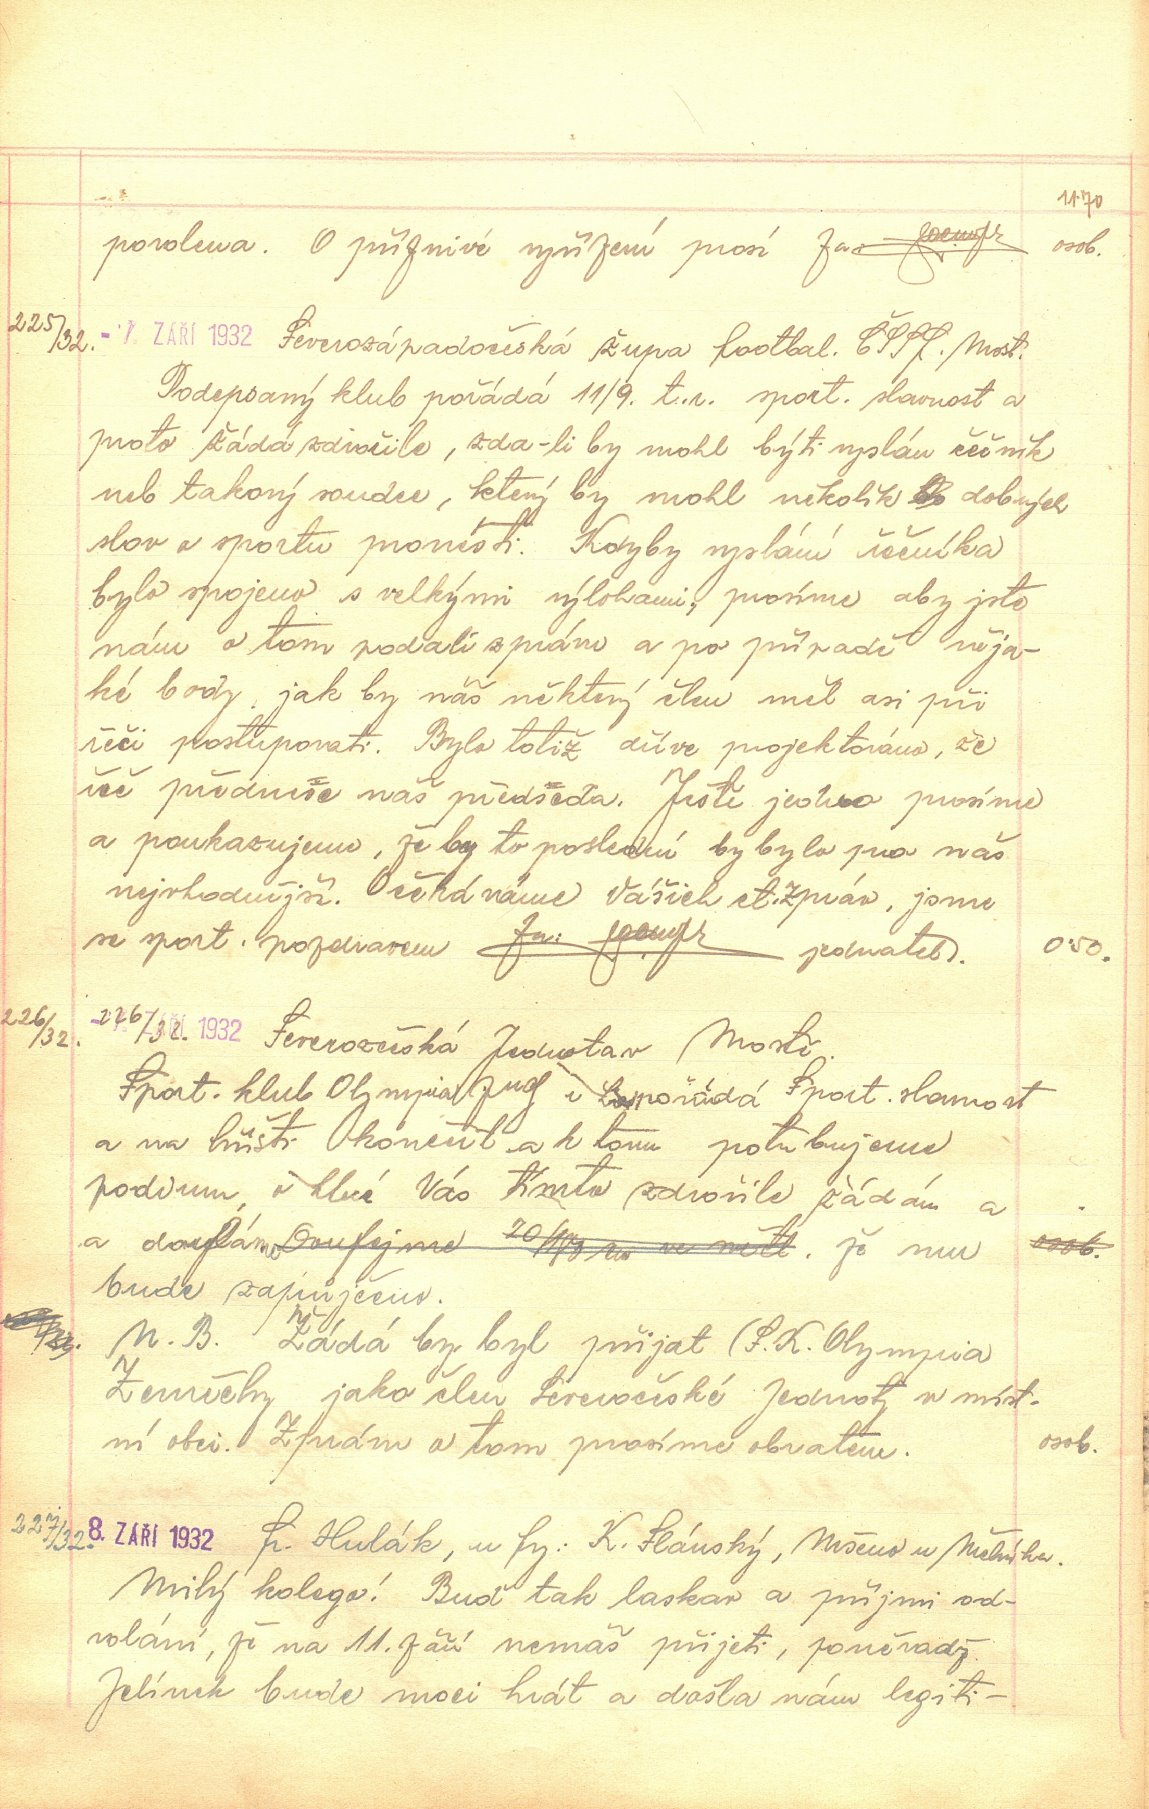 11·70
povolena. O příznivé vyřízení prosí Za: osob.
225/32. - 7. ZÁŘÍ 1932 Severozápadočeská župa footbal. ČSSF. Most.
Podepsaný klub pořádá 11/9. t.r. sport. slavnost a
proto žádá zdvořile, zda-li by mohl býti vyslán řečník
neb takový soudce, který by mohl několik dobrých
slov o sportu pronésti. Kdyby vyslání řečníka
bylo spojeno s velkými výlohami, prosíme aby jste
nám o tom podali zprávu a po případě něja-
ké body, jak by náš některý člen měl asi při
řeči postupovati. Bylo totiž dříve projektováno, že
řeč přednese náš předseda. Ještě jedno prosíme
a poukazujeme, že by to poslední by bylo pro nás
nejvhodnější. Očekáváme Vašich ct. zpráv, jsme
se sport. pozdravem Za: jednatel). 0·50.
226/32. 226/32. - 7. ZÁŘÍ 1932 Severočeská Jednota v Mostě.
Sport. klub Olympia pořádá Sport. slavnost
a na hřišti koncert a k tomu potřebujeme
podium, o které Vás tímto zdvořile žádám a
a doufáme Doufejme že mu osob.
bude zapůjčeno.
N. B. Žádá by byl přijat (S.K. Olympia
Žemněchy jako člen Severočeské Jednoty v míst-
ní obci. Zprávu o tom prosíme obratem. osob.
227/32. 8. ZÁŘÍ 1932 Fr. Hulák, u fy: K. Slánský, Mšeno u Mělníka.
Milý kolego! Buď tak laskav a přijmi od-
volání, že na 11. září nemáš přijeti, poněvadž
Jelínek bude moci hrát a došla nám legiti-